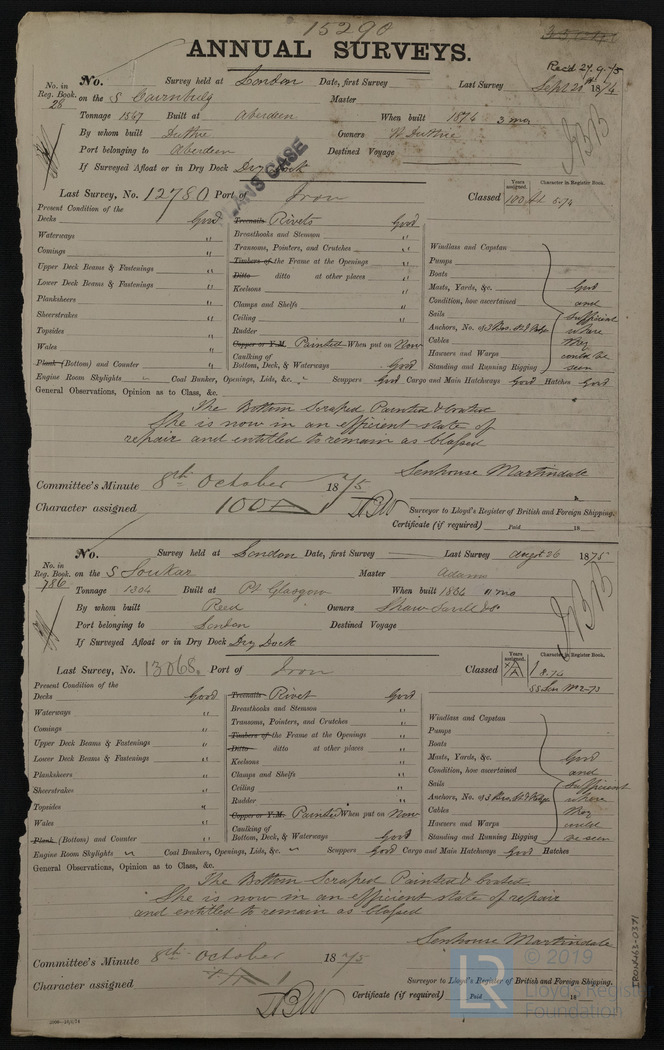 15290
ANNUAL SURVEYS.
Recd 29.9.75
No. in Reg. Book. 28
No. Survey held at London Date, first Survey Last Survey Sept 20 1875
on the S Cairnbulg Master
Tonnage 1567 Built at Aberdeen When built 1874 3 mo
By whom built Duthie Owners W. Duthie
Port belonging to Aberdeen Destined Voyage
If Surveyed Afloat or in Dry Dock Dry Dock
Last Survey, No. 12780 Port of Iron Classed
Years assigned. Character in Register Book.
100 A1 5.74
Present Condition of the
Decks Good
Waterways "
Comings "
Upper Deck Beams & Fastenings "
Lower Deck Beams & Fastenings "
Planksheers "
Sheerstrakes "
Topsides "
Wales "
Plank (Bottom) and Counter "
Treenails Rivets Good
Breasthooks and Stemson "
Transoms, Pointers, and Crutches "
Timbers of the Frame at the Openings "
Ditto ditto at other places "
Keelsons "
Clamps and Shelfs "
Ceiling "
Rudder "
Copper or Y.M. Painted When put on Now
Caulking of Bottom, Deck, & Waterways Good
Windlass and Capstan
Pumps
Boats
Masts, Yards, &c.
Condition, how ascertained
Sails
Anchors, No. of
Cables
Hawsers and Warps
Standing and Running Rigging
Good and sufficient where they could be seen
Engine Room Skylights " Coal Bunker, Openings, Lids, &c. " Scuppers Good Cargo and Main Hatchways Good Hatches Good
General Observations, Opinion as to Class, &c.
The Bottom Scraped Painted & Coated
She is now in an efficient state of
repair and entitled to remain as Classed
Senhouse Martindale
Committee's Minute 8th October 1875
Character assigned 100 A
Surveyor to Lloyd's Register of British and Foreign Shipping.
Certificate (if required) Paid 18
No. in Reg. Book. 786
No. Survey held at London Date, first Survey Last Survey Augst 26 1875
on the S Soukar Master Adams
Tonnage 1304 Built at Pt Glasgow When built 1864 11 mo
By whom built Reed Owners Shaw Savill & Co
Port belonging to London Destined Voyage
If Surveyed Afloat or in Dry Dock Dry Dock
Last Survey, No. 13068. Port of Iron Classed
Years assigned. Character in Register Book.
Present Condition of the
Decks Good
Waterways "
Comings "
Upper Deck Beams & Fastenings "
Lower Deck Beams & Fastenings "
Planksheers "
Sheerstrakes "
Topsides "
Wales "
Plank (Bottoms) and Counter "
Treenails Rivet Good
Breasthooks and Stemson "
Transoms, Pointers, and Crutches "
Timbers of the Frame at the Openings "
Ditto ditto at other places "
Keelsons "
Clamps and Shelfs "
Ceiling "
Rudder "
Copper or Y.M. Painted When put on Now
Caulking of Bottom, Deck, & Waterways Good
Windlass and Capstan
Pumps
Boats
Masts, Yards, &c.
Condition, how ascertained
Sails
Anchors, No. of
Cables
Hawsers and Warps
Standing and Running Rigging
Good and sufficient where they could be seen
Engine Room Skylights " Coal Bunkers, Openings, Lids, &c. " Scuppers Good Cargo and Main Hatchways Good Hatches
General Observations, Opinion as to Class, &c.
The Bottom Scraped Painted & Coated.
She is now in an efficient state of repair
and entitled to remain as Classed
Senhouse Martindale
Committee's Minute 8th October 1875
Character assigned
Surveyor to Lloyd's Register of British and Foreign Shipping.
Certificate (if required) Paid 18
IRON463-0371
© 2019
LR
Lloyd's Register
Foundation